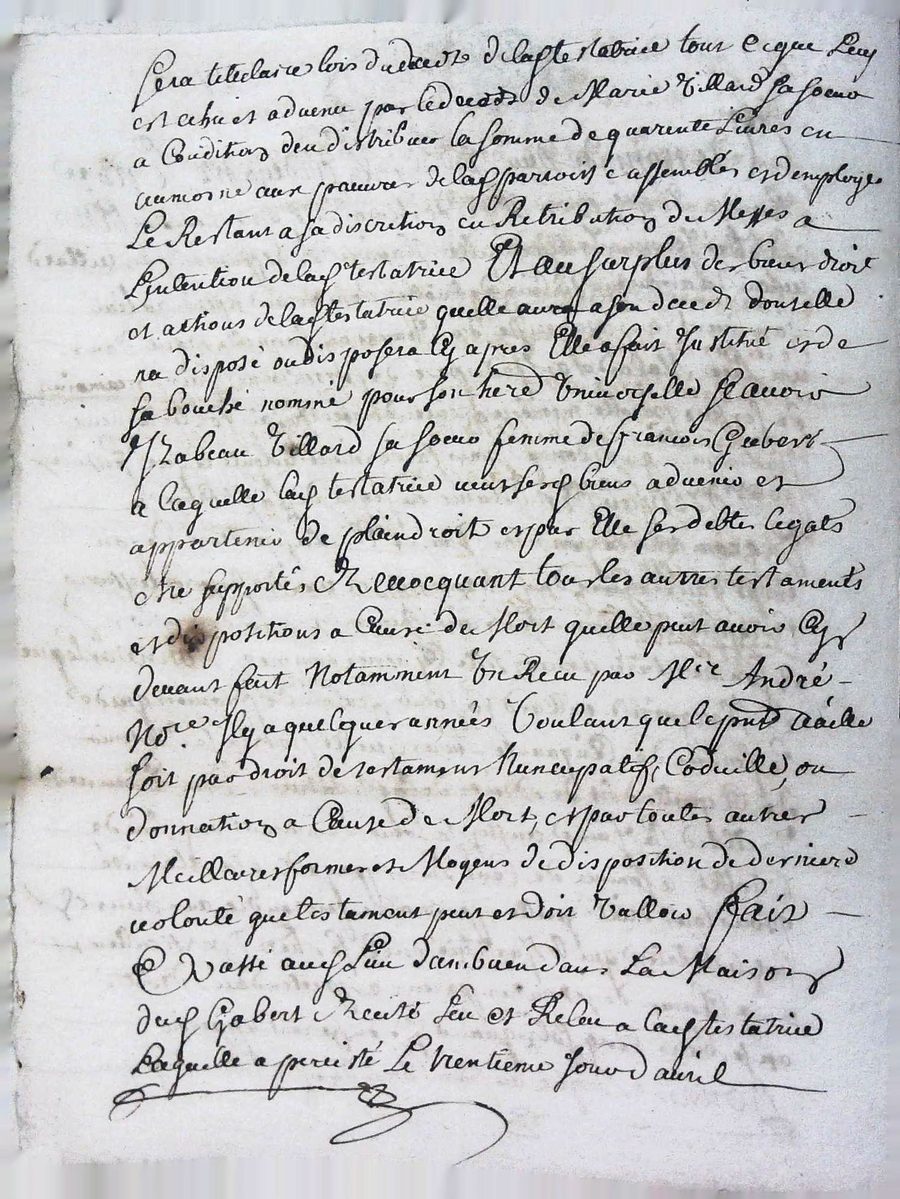 Sera titulaire lors du deces de lad testatrice tout ce que luy
est echu et advenu par le deceds de Marie Villard sa soeur
a Condition d'en distribuer la somme de quarente Livres en
aumosne aux pauvres de lad parroisse assemblés et d'employer
Le Restant a sa discretion en Retribution de Messes a
L'intention de lad testatrice Et au surplus des biens droit
et actions de lad testatrice quelle aura a son deceds dont elle
na disposé ou disposera Cy apres Elle a fait Institué et de
sa bouche nommé pour son hered Universelle Scavoir
Izabeau Villard sa soeur femme de francois Gabert
a laquelle lad testatrice veut sesd biens advenir et
appartenir de plain droit et par Elle ses debtes legats
etre supportés Revocquant tous les autres testaments
et dispositions a Cause de Mort quelle peut avoir Cy
devant fait Notamment Un Recu par Me André
Nore Il y a quelques années Voulant que le pnt vaille
soit par droit de testament Nuncupatif, Codicille, ou
donnation a Cause de Mort, et par toutes autres
Meilleures formes et Moyens de disposition de derniere
volonté que testament peut et doit Valloir Fait
& Passé aud Lieu dambuen dans La Maison
dud Gabert Recité Leu et Releu a lad testatrice
Laquelle a percisté Le trentieme Jour d'avril